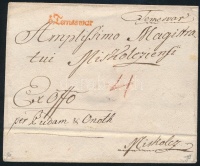 v:Temesvar
Temesvar
Amplissimo Magistra
tui Miskolcziensi
4
Ex offo
per Budam & Onoth
Miskolcz